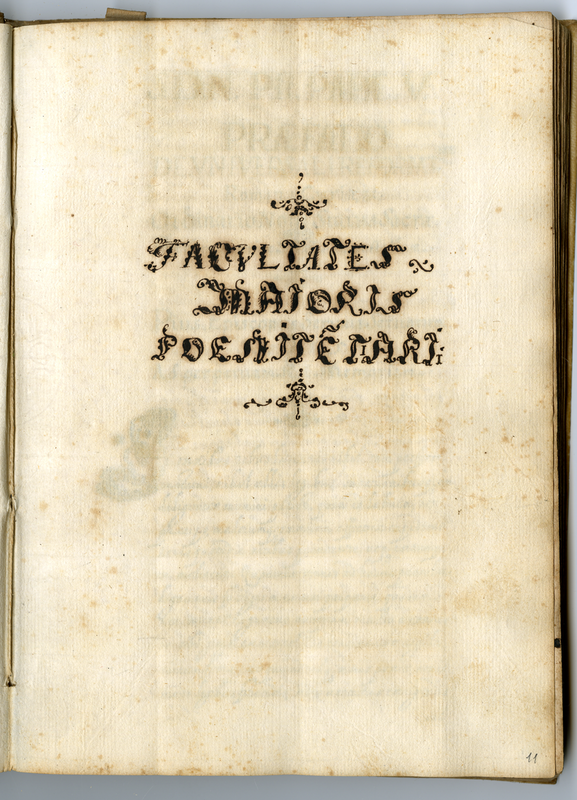 FACVLTATES
MAIORIS
POENITẼTIARI
11